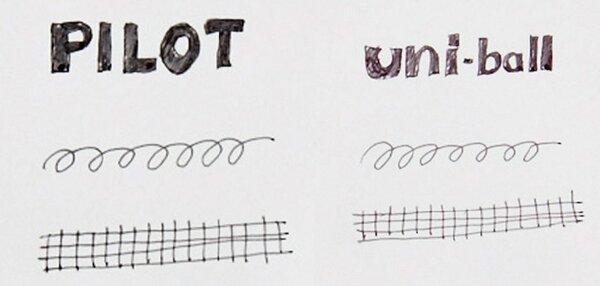 PILOT
uni-ball